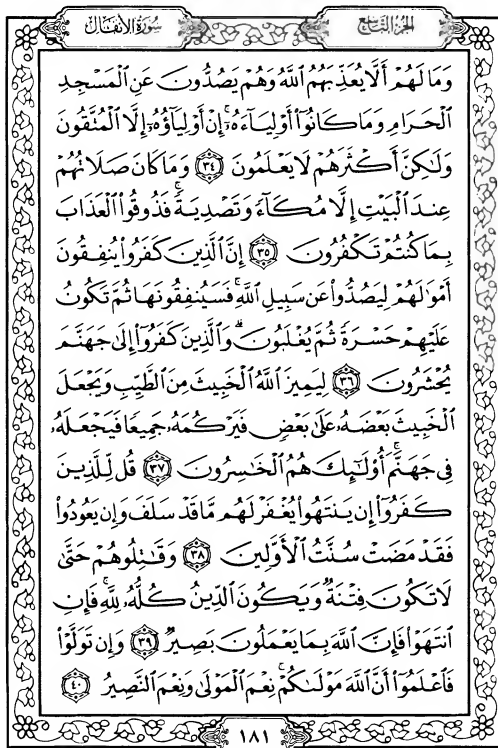 سُورَةُ الأَنفَالِ
الجُزءُ التَّاسِعُ
وَمَا لَهُمْ أَلَّا يُعَذِّبَهُمُ ٱللَّهُ وَهُمْ يَصُدُّونَ عَنِ ٱلْمَسْجِدِ
ٱلْحَرَامِ وَمَا كَانُوٓا۟ أَوْلِيَآءَهُۥٓ ۚ إِنْ أَوْلِيَآؤُهُۥٓ إِلَّا ٱلْمُتَّقُونَ
وَلَٰكِنَّ أَكْثَرَهُمْ لَا يَعْلَمُونَ ٣٤ وَمَا كَانَ صَلَاتُهُمْ
عِندَ ٱلْبَيْتِ إِلَّا مُكَآءً وَتَصْدِيَةً ۚ فَذُوقُوا۟ ٱلْعَذَابَ
بِمَا كُنتُمْ تَكْفُرُونَ ٣٥ إِنَّ ٱلَّذِينَ كَفَرُوا۟ يُنفِقُونَ
أَمْوَٰلَهُمْ لِيَصُدُّوا۟ عَن سَبِيلِ ٱللَّهِ ۚ فَسَيُنفِقُونَهَا ثُمَّ تَكُونُ
عَلَيْهِمْ حَسْرَةً ثُمَّ يُغْلَبُونَ ۗ وَٱلَّذِينَ كَفَرُوٓا۟ إِلَىٰ جَهَنَّمَ
يُحْشَرُونَ ٣٦ لِيَمِيزَ ٱللَّهُ ٱلْخَبِيثَ مِنَ ٱلطَّيِّبِ وَيَجْعَلَ
ٱلْخَبِيثَ بَعْضَهُۥ عَلَىٰ بَعْضٍ فَيَرْكُمَهُۥ جَمِيعًا فَيَجْعَلَهُۥ
فِى جَهَنَّمَ ۚ أُو۟لَٰٓئِكَ هُمُ ٱلْخَٰسِرُونَ ٣٧ قُل لِّلَّذِينَ
كَفَرُوٓا۟ إِن يَنتَهُوا۟ يُغْفَرْ لَهُم مَّا قَدْ سَلَفَ وَإِن يَعُودُوا۟
فَقَدْ مَضَتْ سُنَّتُ ٱلْأَوَّلِينَ ٣٨ وَقَٰتِلُوهُمْ حَتَّىٰ
لَا تَكُونَ فِتْنَةٌ وَيَكُونَ ٱلدِّينُ كُلُّهُۥ لِلَّهِ ۚ فَإِنِ
ٱنتَهَوْا۟ فَإِنَّ ٱللَّهَ بِمَا يَعْمَلُونَ بَصِيرٌ ٣٩ وَإِن تَوَلَّوْا۟
فَٱعْلَمُوٓا۟ أَنَّ ٱللَّهَ مَوْلَىٰكُمْ ۚ نِعْمَ ٱلْمَوْلَىٰ وَنِعْمَ ٱلنَّصِيرُ ٤٠
١٨١